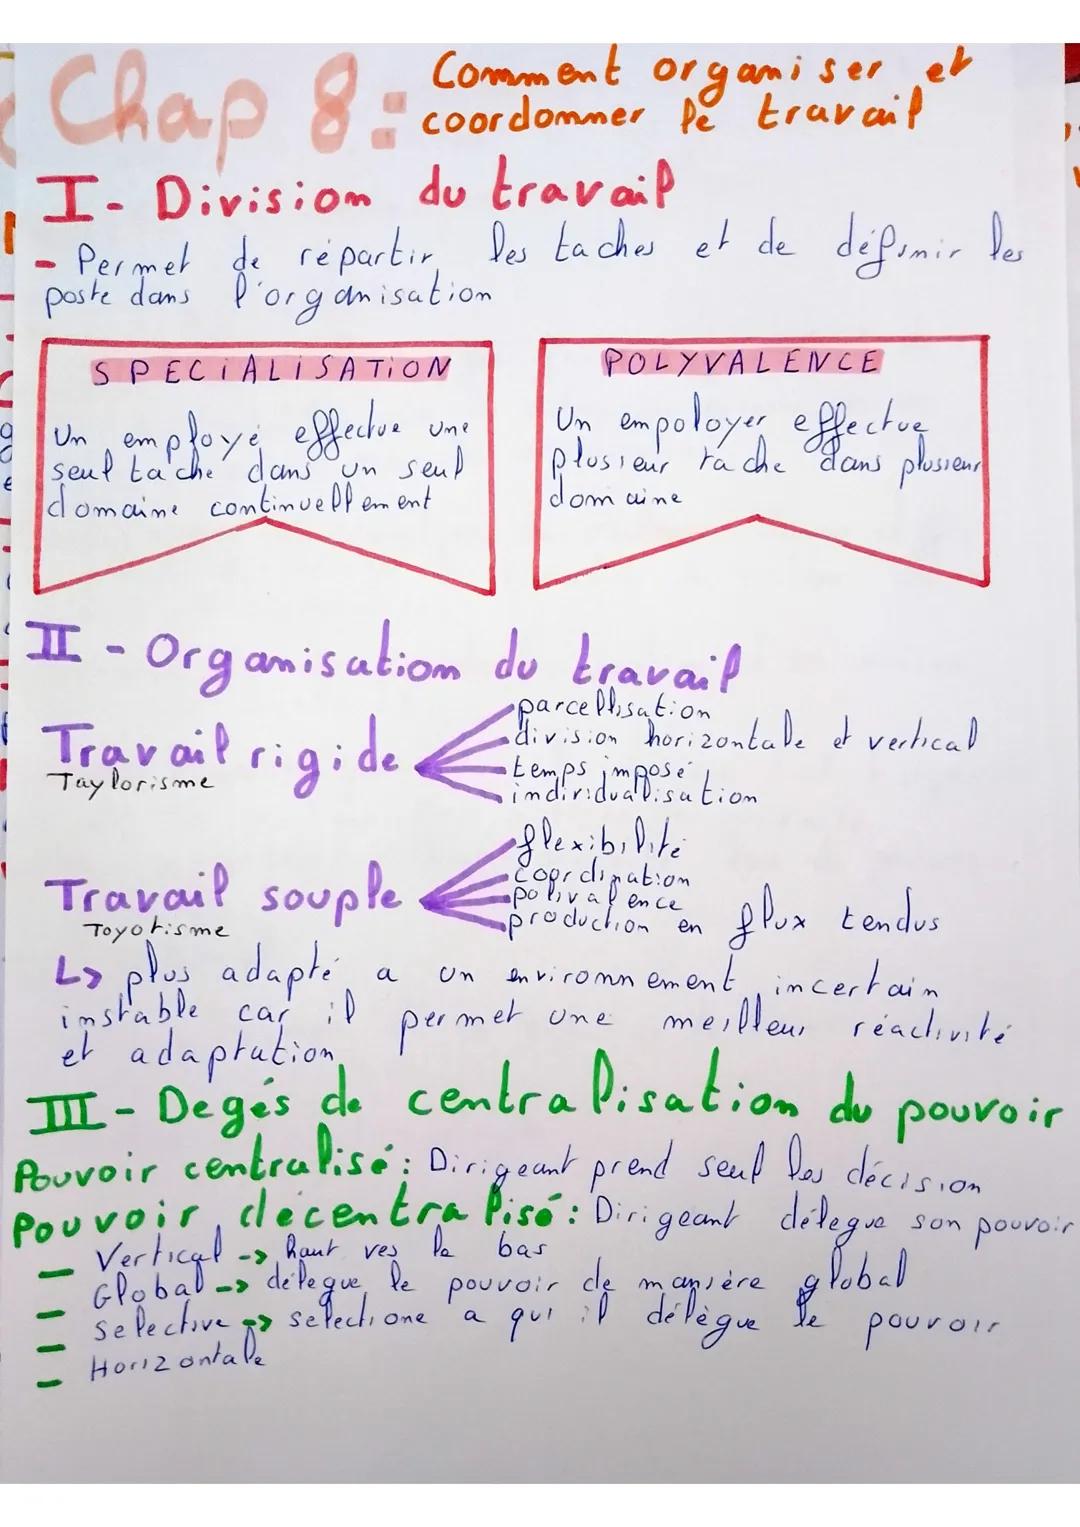 Chap 8: Comment organiser et
coordonner le travail
I- Division du travail
- Permet de répartir les taches et de définir les
poste dans l'organisation
SPECIALISATION
Un employé effectue une
seul tache dans un seul
domaine continuellement
POLYVALENCE
Un empoloyer effectue
plusieur tache dans plusieur
domaine
II - Organisation du travail
Travail rigide
Taylorisme
parcellisation
division horizontale et vertical
temps imposé
individualisation
Travail souple
Toyotisme
flexibilité
coordination
polivalence
production en flux tendus
↳ plus adapté a un environnement incertain
instable car il permet une meilleur réactivité
et adaptation
III - Degés de centralisation du pouvoir
Pouvoir centralisé: Dirigeant prend seul les décision
Pouvoir décentralisé: Dirigeant délegue son pouvoir
- Vertical -> haut ves la bas
- Global -> délegue le pouvoir de manière global
- Selective -> selectione a qui il délègue le pouvoir
- Horizontale